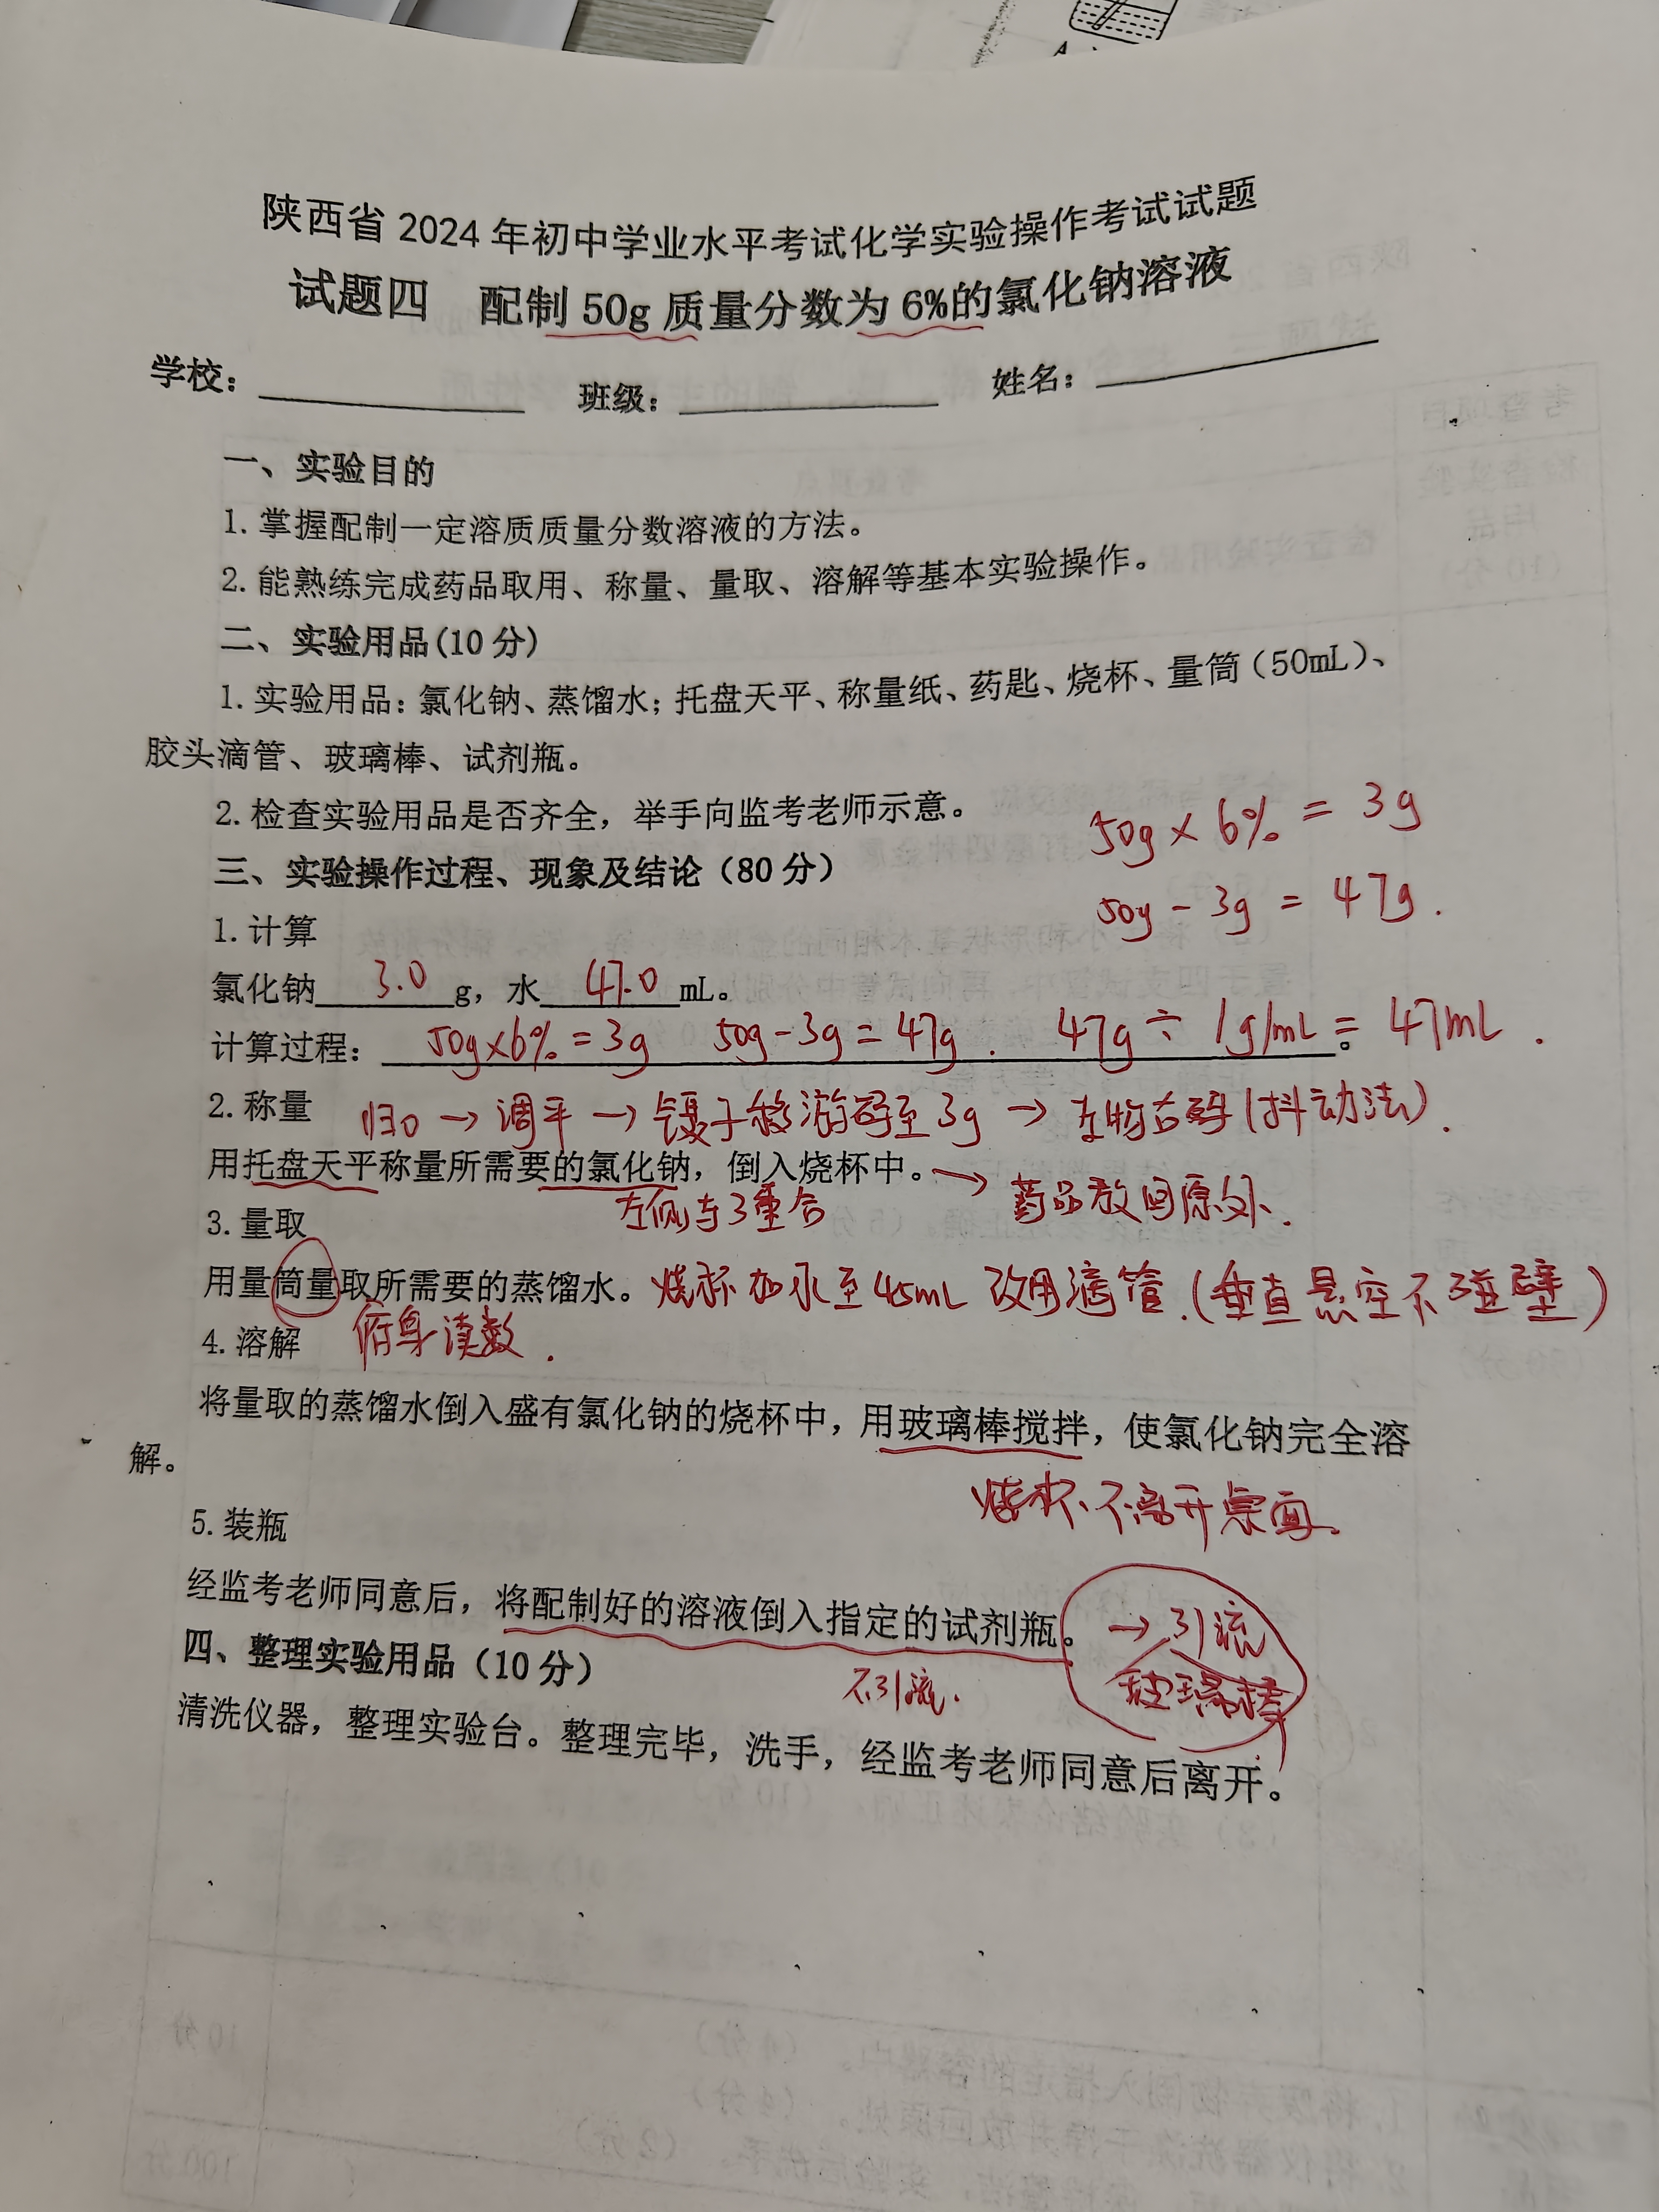 陕西省 2024 年初中学业水平考试化学实验操作考试试题
试题四 配制 50g 质量分数为 6%的氯化钠溶液
学校：
班级：
姓名：
一、实验目的
1. 掌握配制一定溶质质量分数溶液的方法。
2. 能熟练完成药品取用、称量、量取、溶解等基本实验操作。
二、实验用品(10 分)
1. 实验用品：氯化钠、蒸馏水；托盘天平、称量纸、药匙、烧杯、量筒(50mL)、
胶头滴管、玻璃棒、试剂瓶。
2. 检查实验用品是否齐全，举手向监考老师示意。
50g × 6% = 3g
三、实验操作过程、现象及结论（80 分）
50g - 3g = 47g.
1. 计算
氯化钠 3.0 g，水 47.0 mL。
计算过程： 50g×6% = 3g 50g-3g = 47g. 47g ÷ 1g/mL = 47mL. 。
2. 称量 归0 → 调平 → 镊子移游码至3g → 左物右码(抖动法).
用托盘天平称量所需要的氯化钠，倒入烧杯中。→ 药品放回原处.
左侧与3重合
3. 量取
用量筒量取所需要的蒸馏水。烧杯加水至45mL 改用滴管.(垂直悬空不碰壁)
俯身读数.
4. 溶解
将量取的蒸馏水倒入盛有氯化钠的烧杯中，用玻璃棒搅拌，使氯化钠完全溶
解。
烧杯不离开桌面.
5. 装瓶
经监考老师同意后，将配制好的溶液倒入指定的试剂瓶。→ 引流
玻璃棒
不引流.
四、整理实验用品（10 分）
清洗仪器，整理实验台。整理完毕，洗手，经监考老师同意后离开。